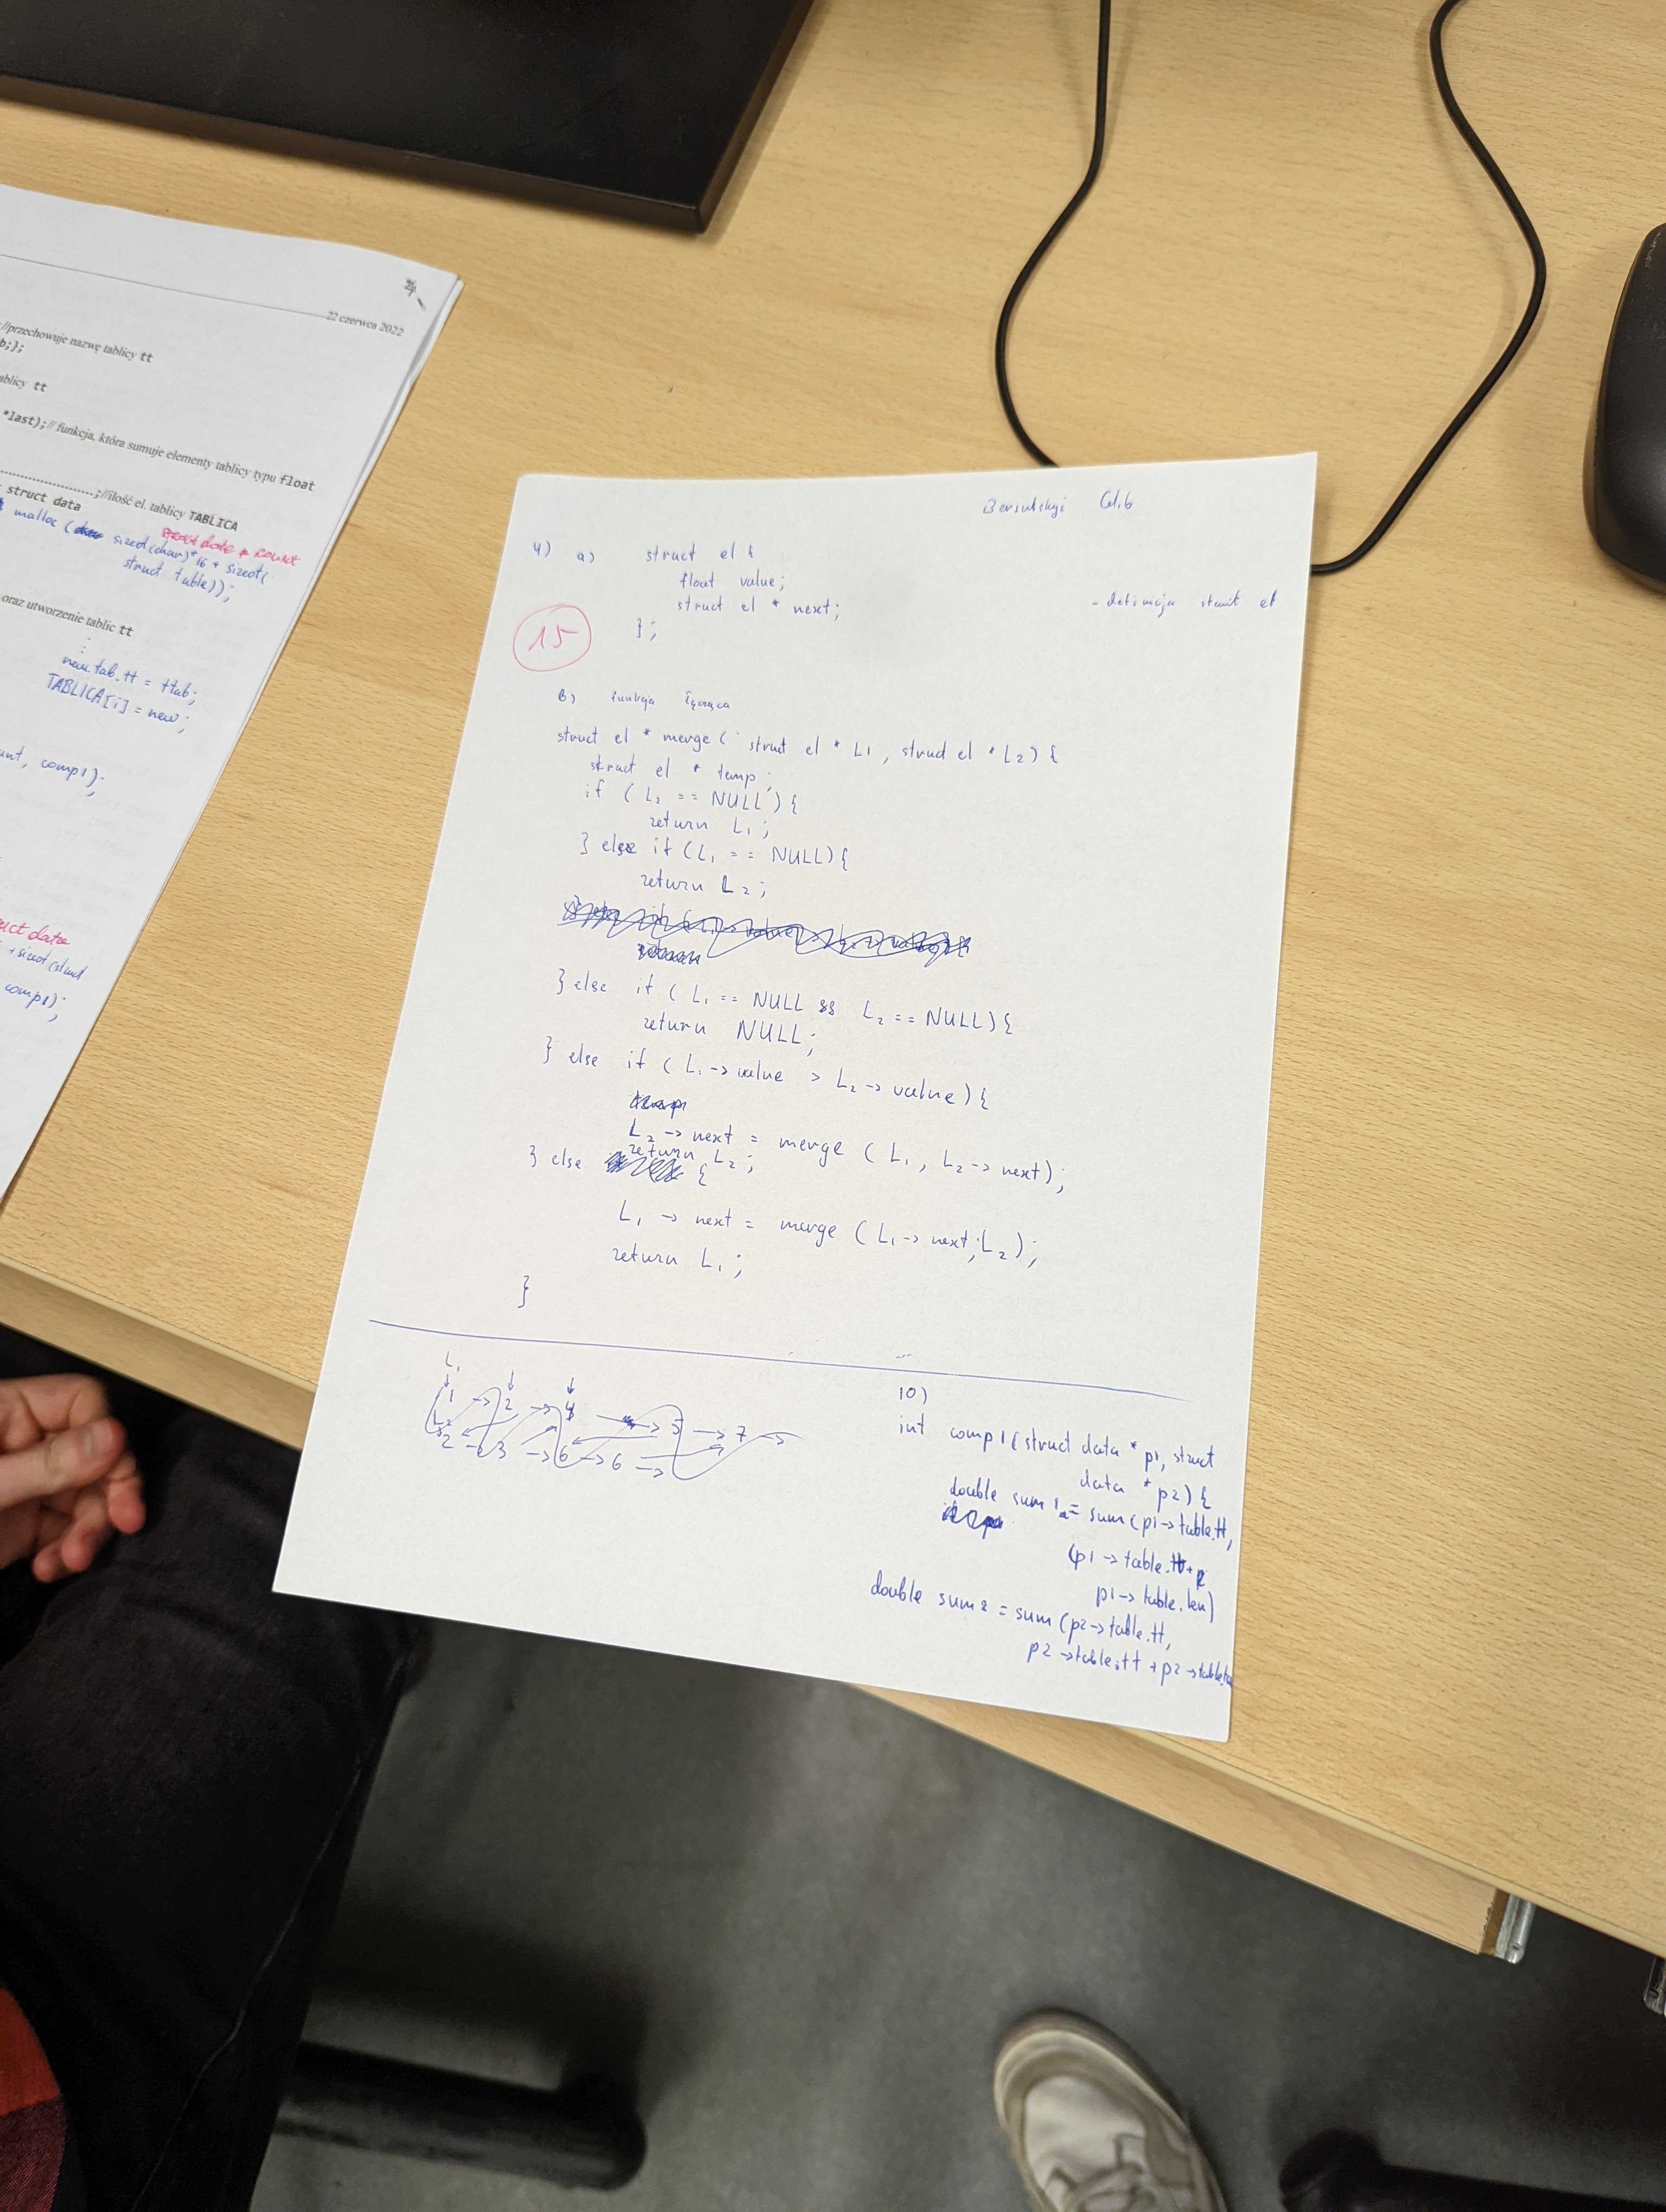 22 czerwca 2022
//przechowuje nazwę tablicy tt
b;};
ablicy tt
*last);// funkcja, która sumuje elementy tablicy typu float
;//ilość el. tablicy TABLICA
struct data
malloc ( sizeof(char)*16 + sizeof(
struct data * count
struct table));
oraz utworzenie tablic tt
new.tab.tt = ttab;
TABLICA[i] = new;
unt, comp1);
uct data
+sizeof(struct
comp1);
Bersutskyi Glib
4) a) struct el {
float value;
struct el * next;
- definicja strukt el
};
15
b) funkcja łącząca
struct el * merge ( struct el * L1 , strud el * L2) {
struct el * temp;
if ( L2 == NULL ) {
return L1 ;
} else if (L1 == NULL) {
return L2 ;
} else if ( L1 == NULL && L2 == NULL) {
return NULL;
} else if ( L1 -> value > L2 -> value) {
L2 -> next = merge ( L1 , L2 -> next);
return L2 ;
} else {
L1 -> next = merge ( L1 -> next, L2 );
return L1 ;
}
L1
1 -> 2 -> 4 -> 5 -> 7 ->
L2
2 -> 3 -> 6 -> 6 ->
10)
int comp1(struct data * p1, struct
data * p2) {
double sum1 = sum(p1->table.tt,
(p1 -> table.tt +
p1 -> table.len)
double sum2 = sum (p2->table.tt,
p2 ->table.tt + p2 ->table.